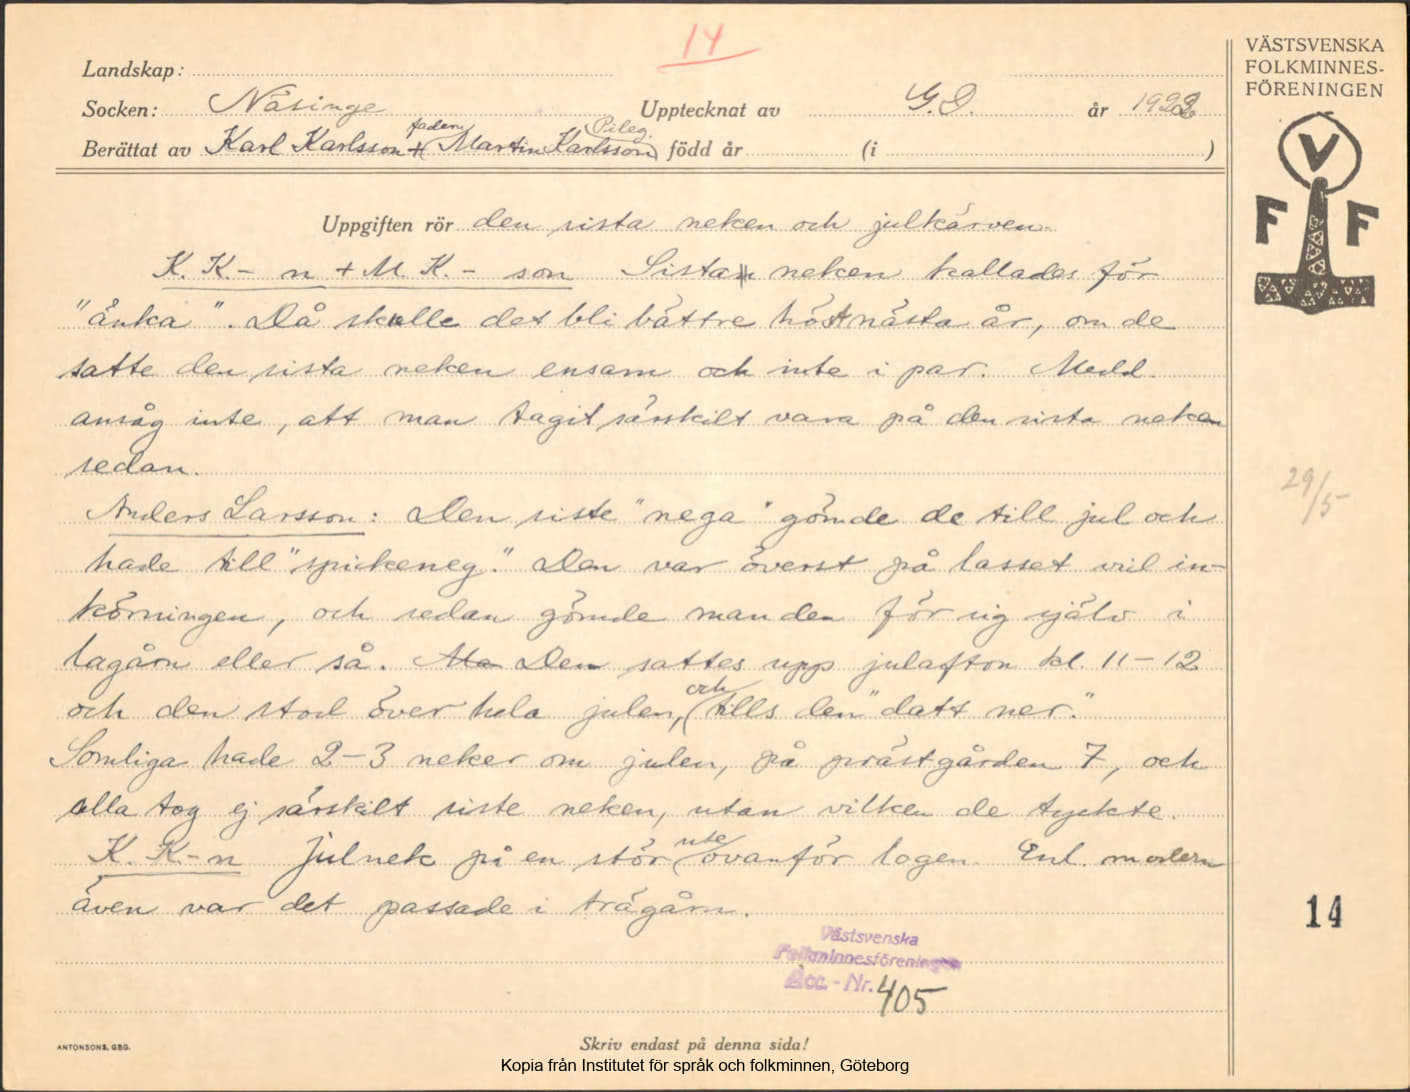 14
VÄSTSVENSKA
FOLKMINNES-
FÖRENINGEN
V
F F
Landskap:
Socken: Näsinge Upptecknat av G.I. år 1922
Berättat av Karl Karlsson + (fadern Martin Karlsson) Pileg. född år (i )
Uppgiften rör den sista neken och julkärven.
K. K-n + M. K.-son Sista neken kallades för
"änka". Då skulle det bli bättre höst nästa år, om de
satte den sista neken ensam och inte i par. Medd.
ansåg inte, att man tagit särskilt vara på den sista neken
sedan.
Anders Larsson: Den siste "nega" gömde de till jul och
hade till "spickeneg." Den var överst på lasset vid in-
körningen, och sedan gömde man den för sig själv i
lagårn eller så. Ma Den sattes upp julafton kl. 11-12
och den stod över hela julen, och tills den "datt ner."
Somliga hade 2-3 neker om julen, på prästgården 7, och
alla tog ej särskilt siste neken, utan vilken de tyckte.
K. K-n Julnek på en stör ute ovanför logen. Enl. modern
även var det passade i trägårn.
29/5
14
Västsvenska
Folkminnesföreningen
Acc.-Nr. 405
ANTONSONS, GBG.
Skriv endast på denna sida!
Kopia från Institutet för språk och folkminnen, Göteborg